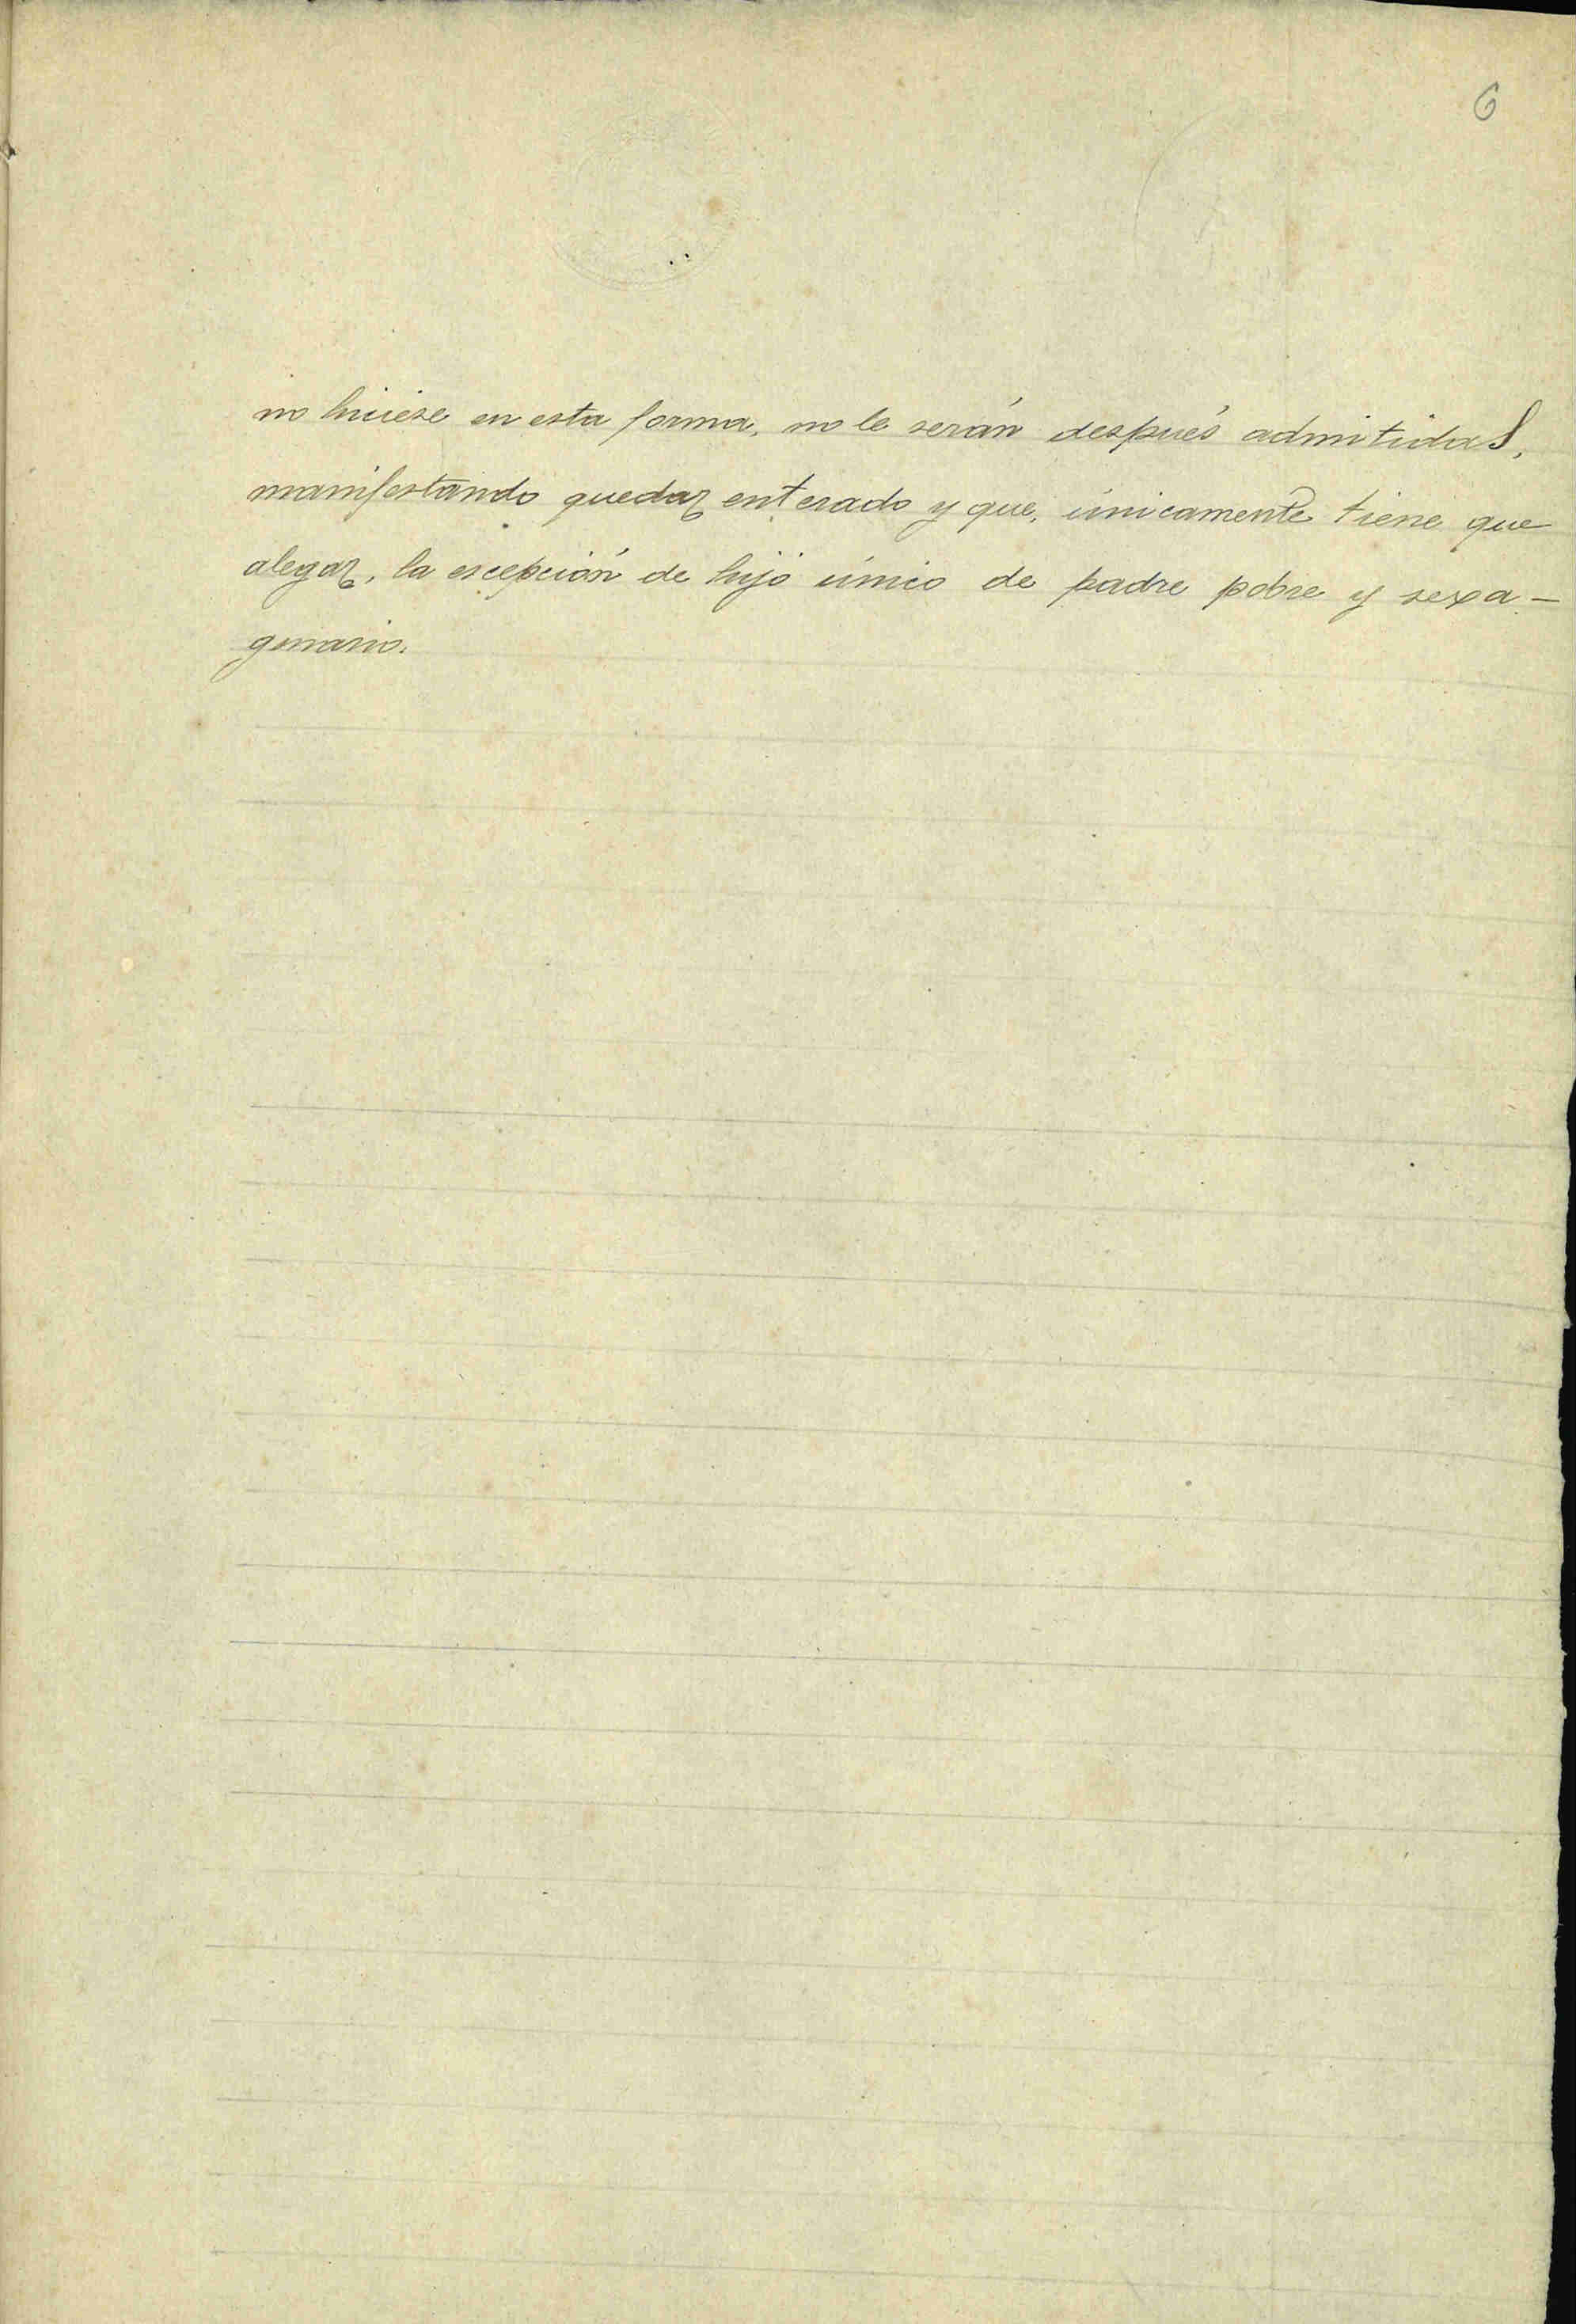 6
no hiciese en esta forma, no le serán después admitidas,
manifestando quedar enterado y que, únicamente tiene que
alegar, la escepción de hijo único de padre pobre y sexa-
genario.